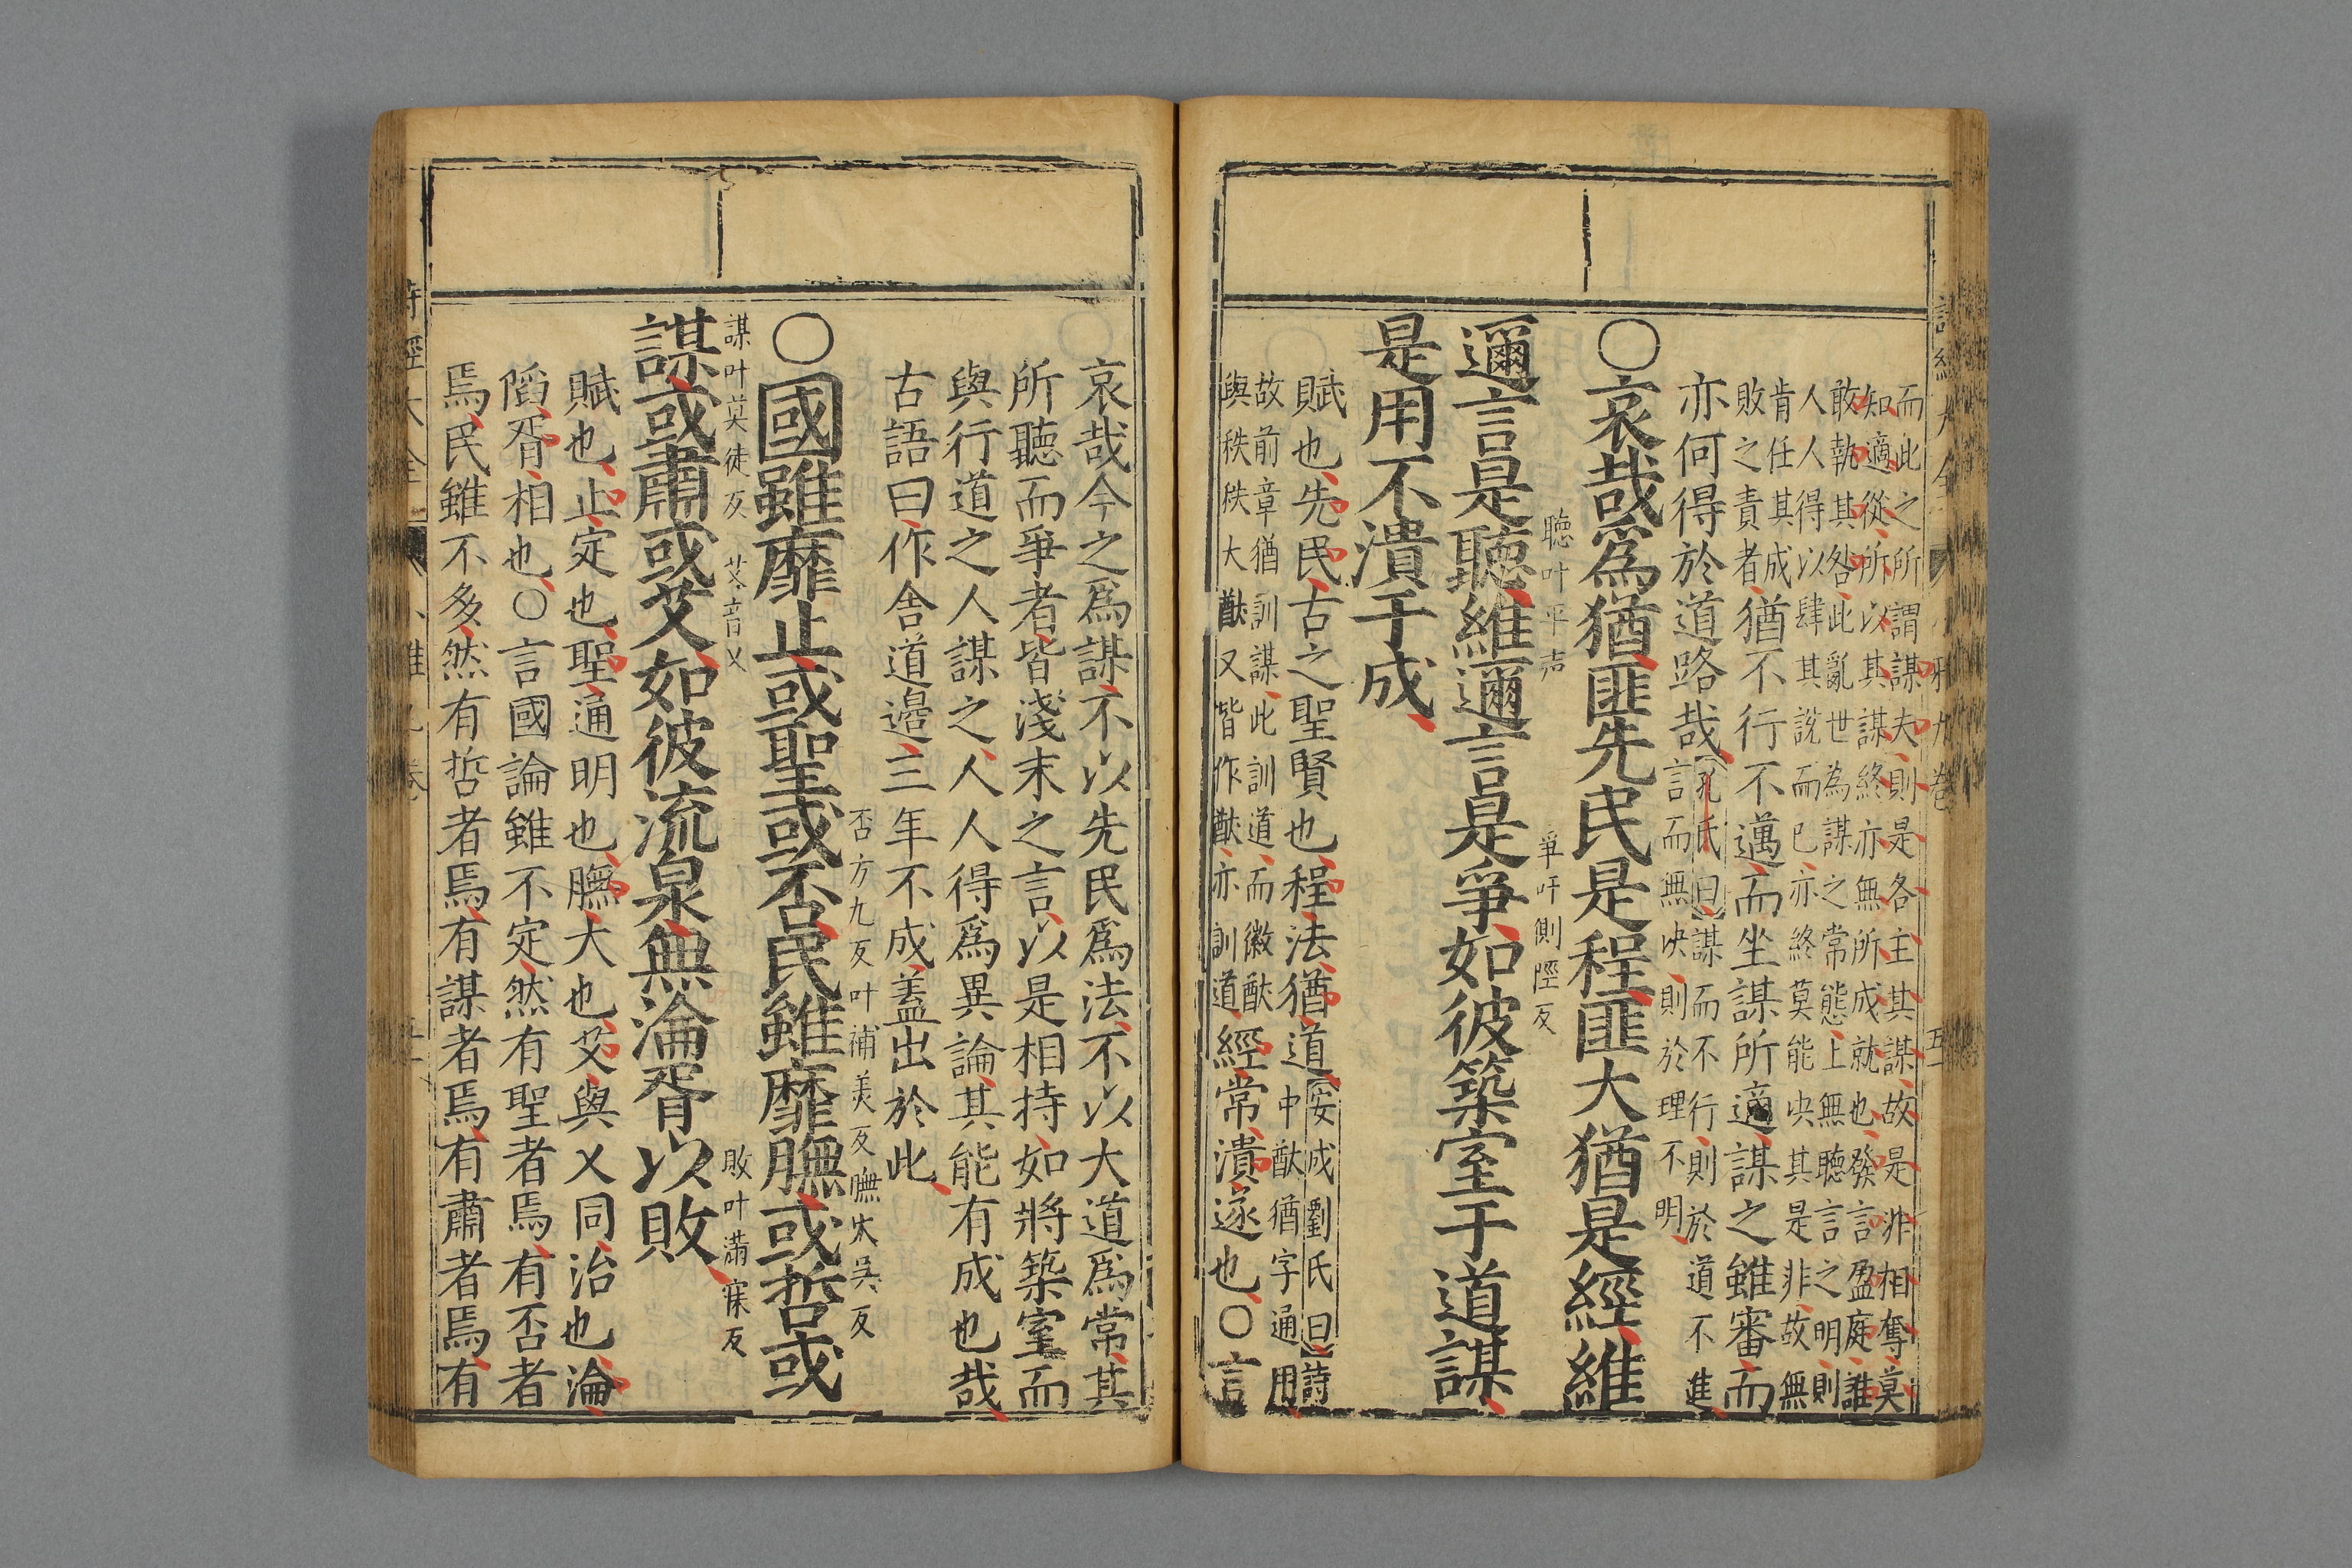 而此之所謂謀夫則是各主其謀故是非相奪莫
知適從所以其謀終亦無所成就也發言盈庭誰
敢執其咎此亂世為謀之常態上無聽言之明則
人人得以肆其說而已亦終莫能决其是非故無
肯任其成
敗之責者猶不行不邁而坐謀所適謀之雖審而
亦何得於道路哉
孔氏曰謀而不行則於道不進
言而無决則於理不明
○哀哉爲猶匪先民是程匪大猶是經維
聽叶平声
爭叶側陘反
邇言是聽維邇言是爭如彼築室于道謀
是用不潰于成
賦也先民古之聖賢也程法猶道
安成劉氏曰詩
中猷猶字通用
故前章猶訓謀此訓道而徽猷
與秩秩大猷又皆作猷亦訓道
經常潰遂也○言
哀哉今之爲謀不以先民爲法不以大道爲常其
所聽而爭者皆淺末之言以是相持如將築室而
與行道之人謀之人人得爲異論其能有成也哉
古語曰作舍道邉三年不成蓋出於此
否方九反叶補美反膴火吳反
○國雖靡止或聖或否民雖靡膴或哲或
謀叶莫徒反
艾音乂
敗叶滿寐反
謀或肅或艾如彼流泉無淪胥以敗
賦也止定也聖通明也膴大也艾與乂同治也淪
陷胥相也○言國論雖不定然有聖者焉有否者
焉民雖不多然有哲者焉有謀者焉有肅者焉有